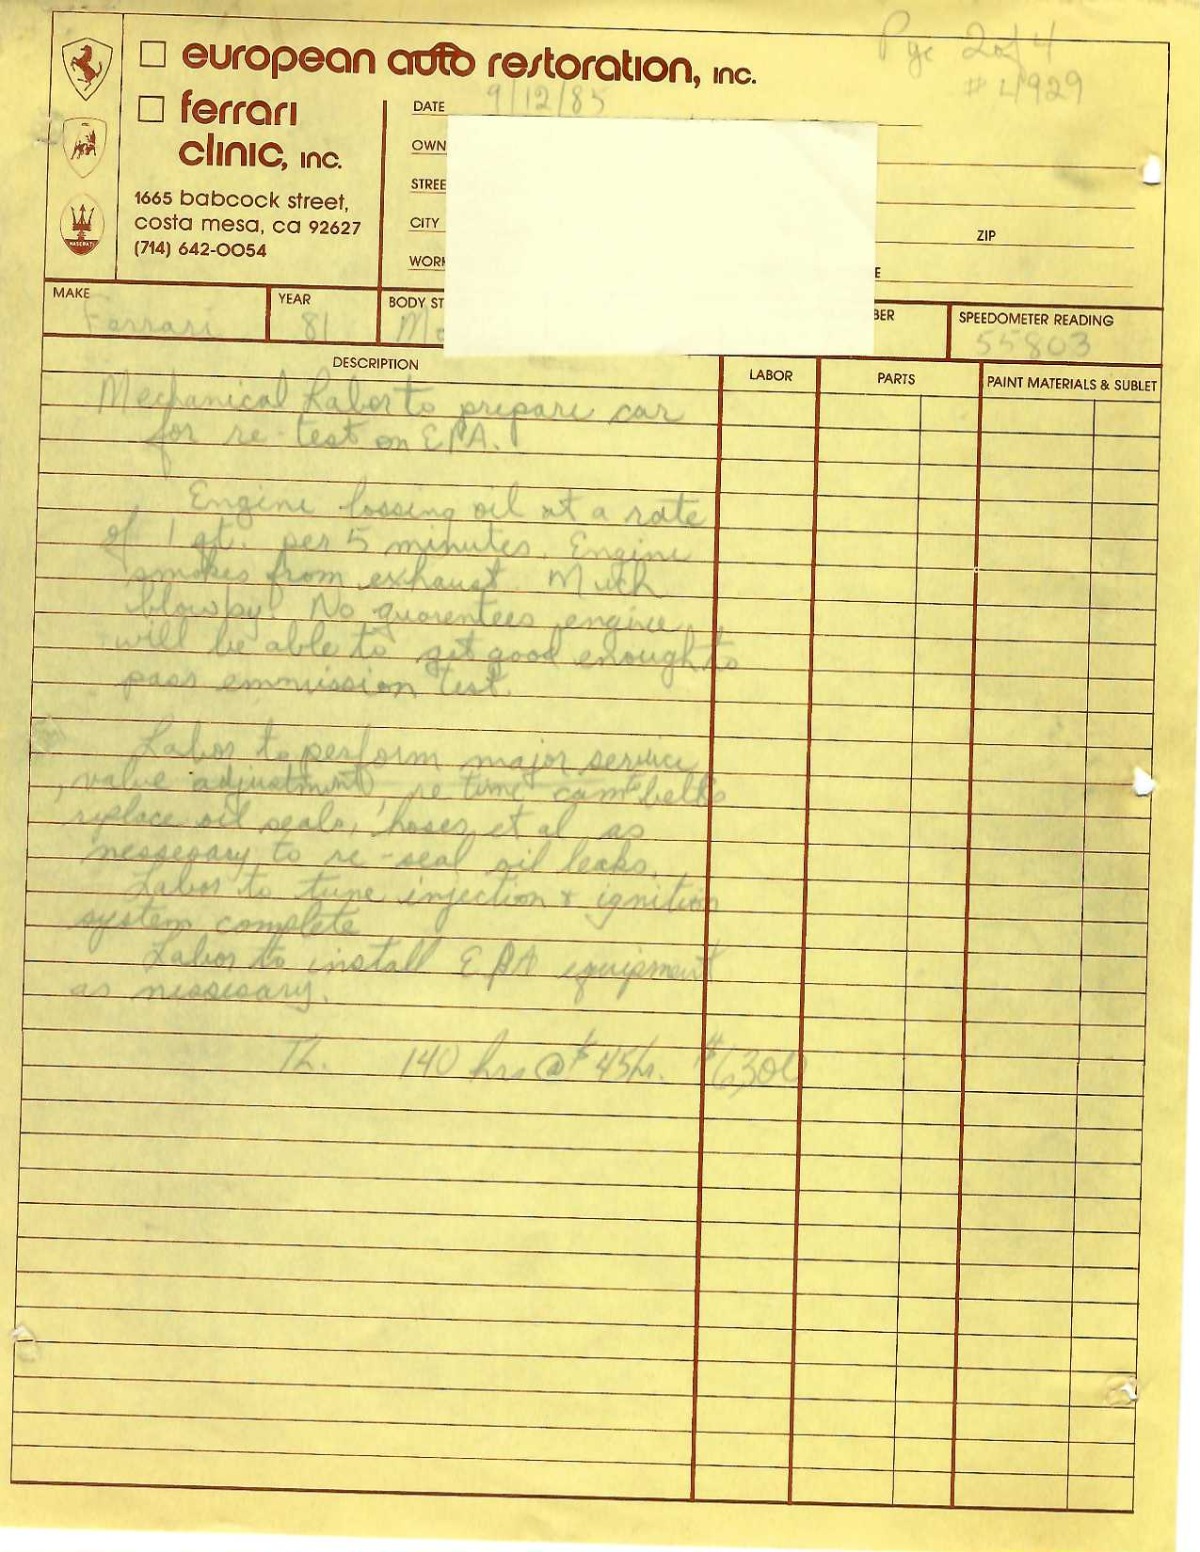 Pge 2 of 4
# 4929
european auto restoration, inc.
ferrari
clinic, inc.
1665 babcock street,
costa mesa, ca 92627
(714) 642-0054
MASERATI
DATE 9/12/85
OWN
STREE
CITY
ZIP
WORK
E
MAKE
Ferrari
YEAR
81
BODY ST
Mo
BER
SPEEDOMETER READING
55803
DESCRIPTION
LABOR
PARTS
PAINT MATERIALS & SUBLET
Mechanical Labor to prepare car
for re-test on EPA.
Engine lossing oil at a rate
of 1 qt. per 5 minutes. Engine
smokes from exhaust. Much
blowby! No guarentees engine
will be able to get good enough to
pass emmission test.
Labor to perform major service,
valve adjustment, re time cam belts
replace oil seals, hoses, et al as
nessesary to re-seal oil leaks.
Labor to tune injection & ignition
system complete
Labor to install EPA equipment
as nessesary.
140 hrs @ $45hr. $6300